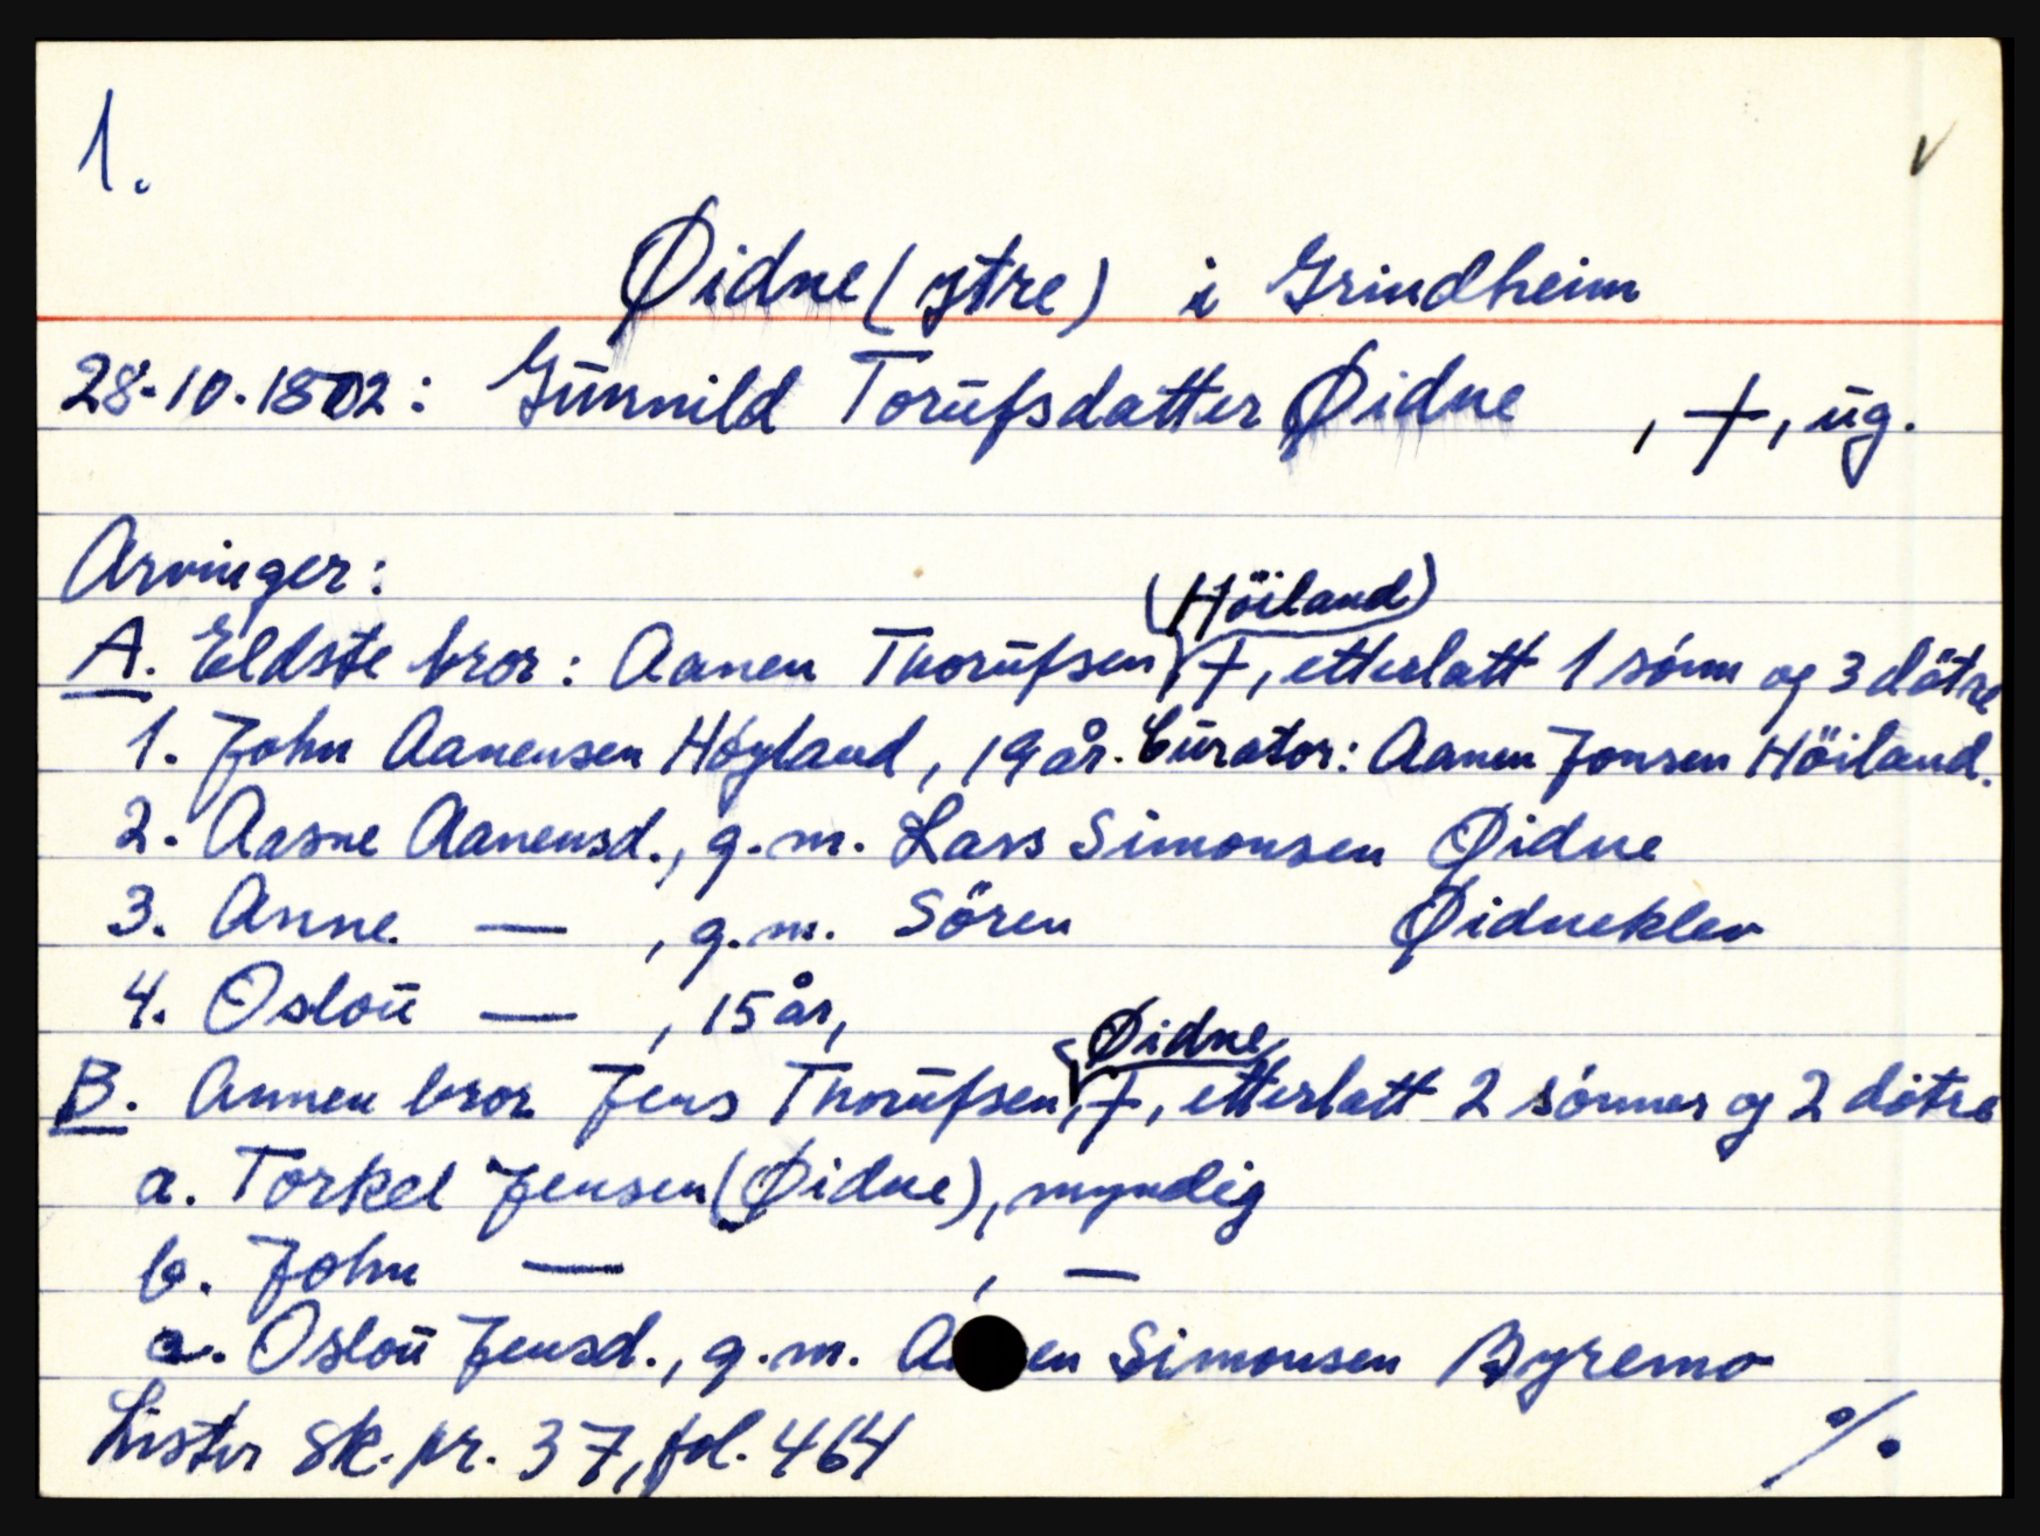 1.
Øidne (ytre) i Grindheim
28-10-1802: Gunnild Torufsdatter Øidne , †, ug.
Arvinger:
(Höiland)
A. Eldste bror: Aanen Thorufsen †, etterlatt 1 sønn og 3 døtre
1. John Aanensen Høyland, 19 år. Curator: Aanen Jonsen Höiland.
2. Aasne Aanensd., g.m. Lars Simonsen Øidne
3. Anne — , g.m. Sören Øidneklev
4. Oslou — , 15 år,
Øidne
B. Annen bror Jens Thorufsen, †, etterlatt 2 sønner og 2 døtre
a. Torkel Jensen (Øidne), myndig
b. John — , —
Oslou Jensd., g.m. Simonsen Byremo
Lister sk.pr. 37, fol. 464 %